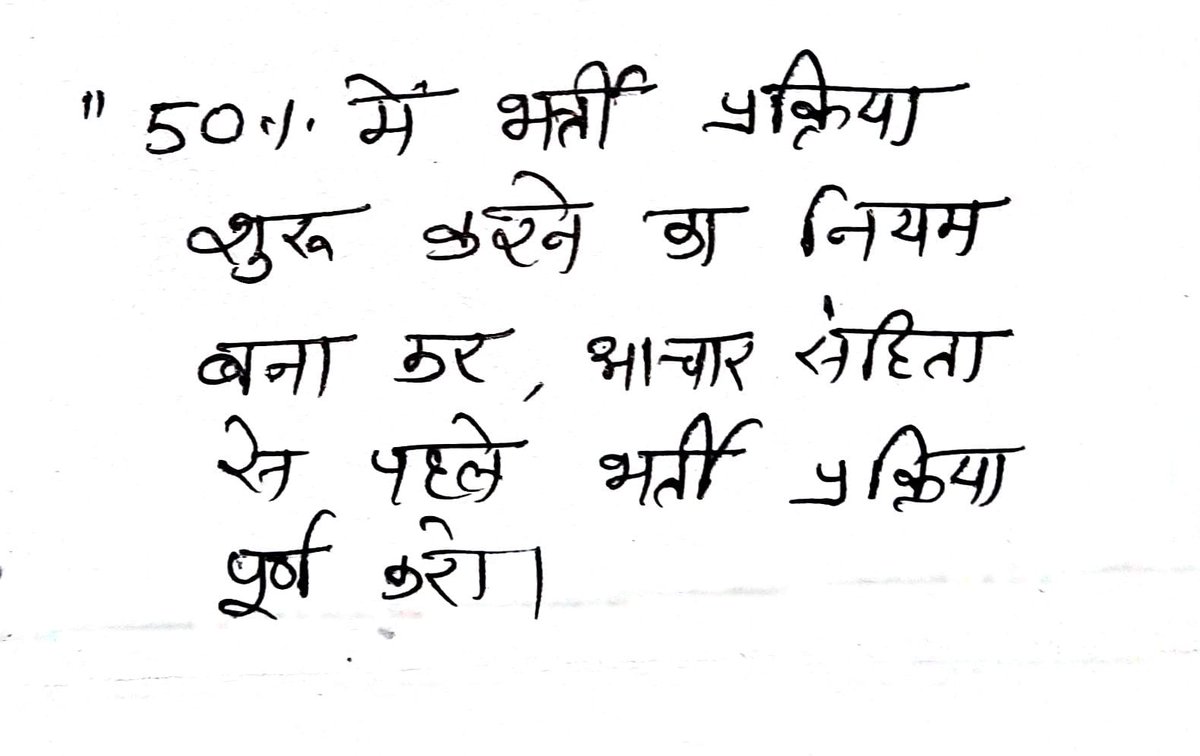 " 50% में भर्ती प्रक्रिया
शुरू करने का नियम
बना कर, आचार संहिता
से पहले भर्ती प्रक्रिया
पूर्ण करो।